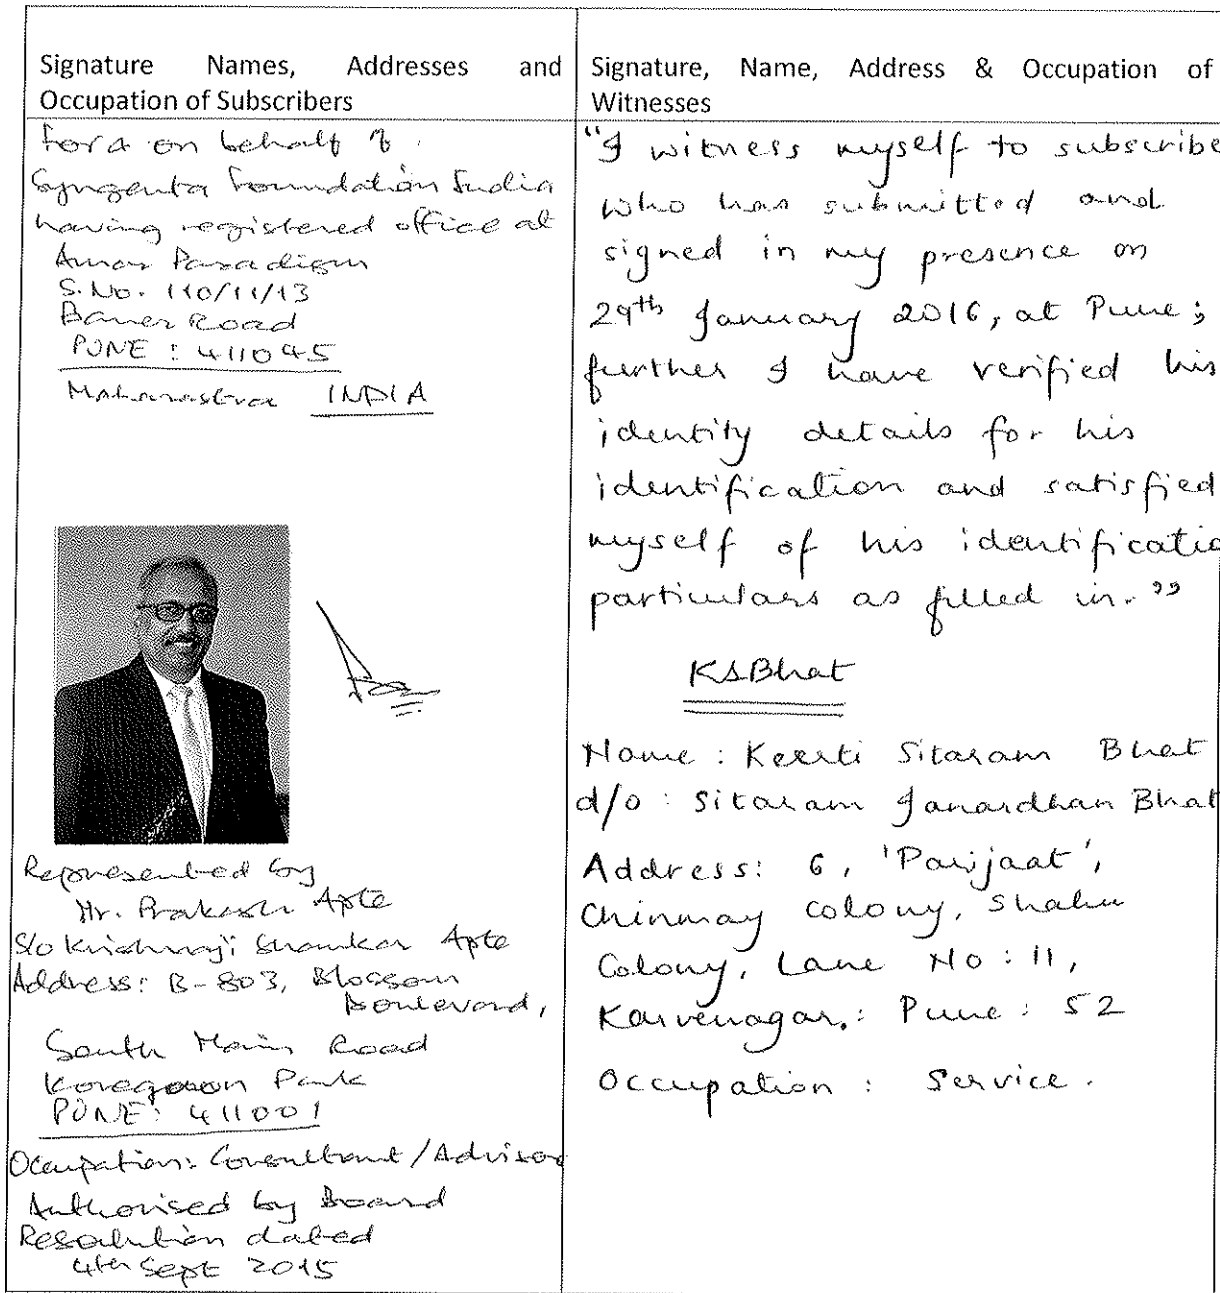 Signature Names, Addresses and
Occupation of Subscribers
For & on behalf of
Syngenta Foundation India
having registered office at
Amar Paradigm
S.No. 110/11/13
Baner Road
PUNE : 411045
Maharastra INDIA
Represented by
Mr. Prakash Apte
S/o Krishnaji Shankar Apte
Address: B-803, Blossom
Boulevard,
South Main Road
Koregaon Park
PUNE: 411001
Occupation: Consultant/Advisor
Authorised by Board
Resolution dated
4th Sept 2015
Signature, Name, Address & Occupation of
Witnesses
"I witness myself to subscribe
who has submitted and
signed in my presence on
29th January 2016, at Pune;
further I have verified his
identity details for his
identification and satisfied
myself of his identificatio
particulars as filled in."
KSBhat
Name : Keerti Sitaram Bhat
d/o : Sitaram Janardhan Bhat
Address: 6, 'Parijaat',
Chinmay colony, Shahu
Colony, Lane No : 11,
Karvenagar, : Pune : 52
Occupation : Service.